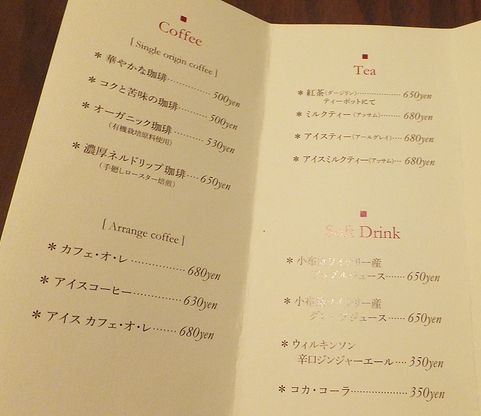 Coffee
[ Single origin coffee ]
* 華やかな珈琲 500yen
* コクと苦味の珈琲 500yen
* オーガニック珈琲 530yen
(有機栽培原料使用)
* 濃厚ネルドリップ珈琲 650yen
(手廻しロースター焙煎)
[ Arrange coffee ]
* カフェ・オ・レ 680yen
* アイスコーヒー 630yen
* アイス カフェ・オ・レ 680yen
Tea
* 紅茶(ダージリン) 650yen
ティーポットにて
* ミルクティー(アッサム) 680yen
* アイスティー(アールグレイ) 680yen
* アイスミルクティー(アッサム) 680yen
Soft Drink
* 小布施ワイナリー産
ジュース 650yen
* 小布施ワイナリー産
ジュース 650yen
* ウィルキンソン
辛口ジンジャーエール 350yen
* コカ・コーラ 350yen